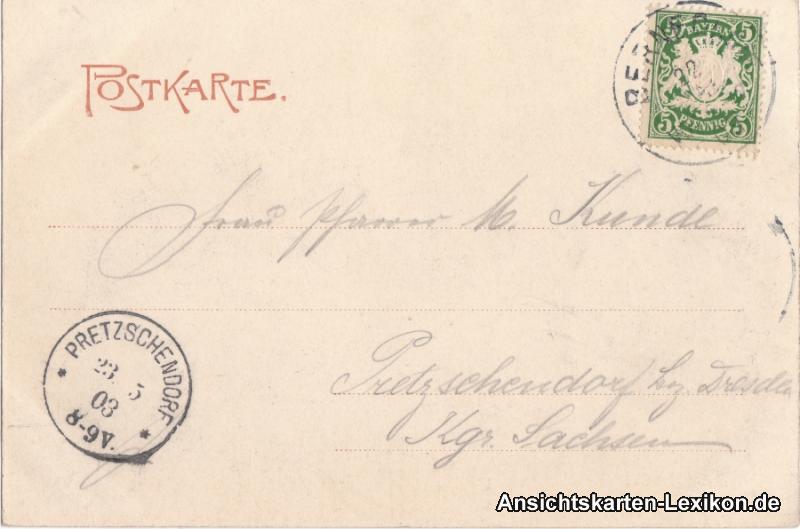 POSTKARTE.
5 BAYERN 5
5 PFENNIG 5
Frau Pfarrer M. Kunde
Pretzschendorf bz Dresden
Kgr. Sachsen
* PRETZSCHENDORF *
23. 5
03
8-9V.
Ansichtskarten-Lexikon.de